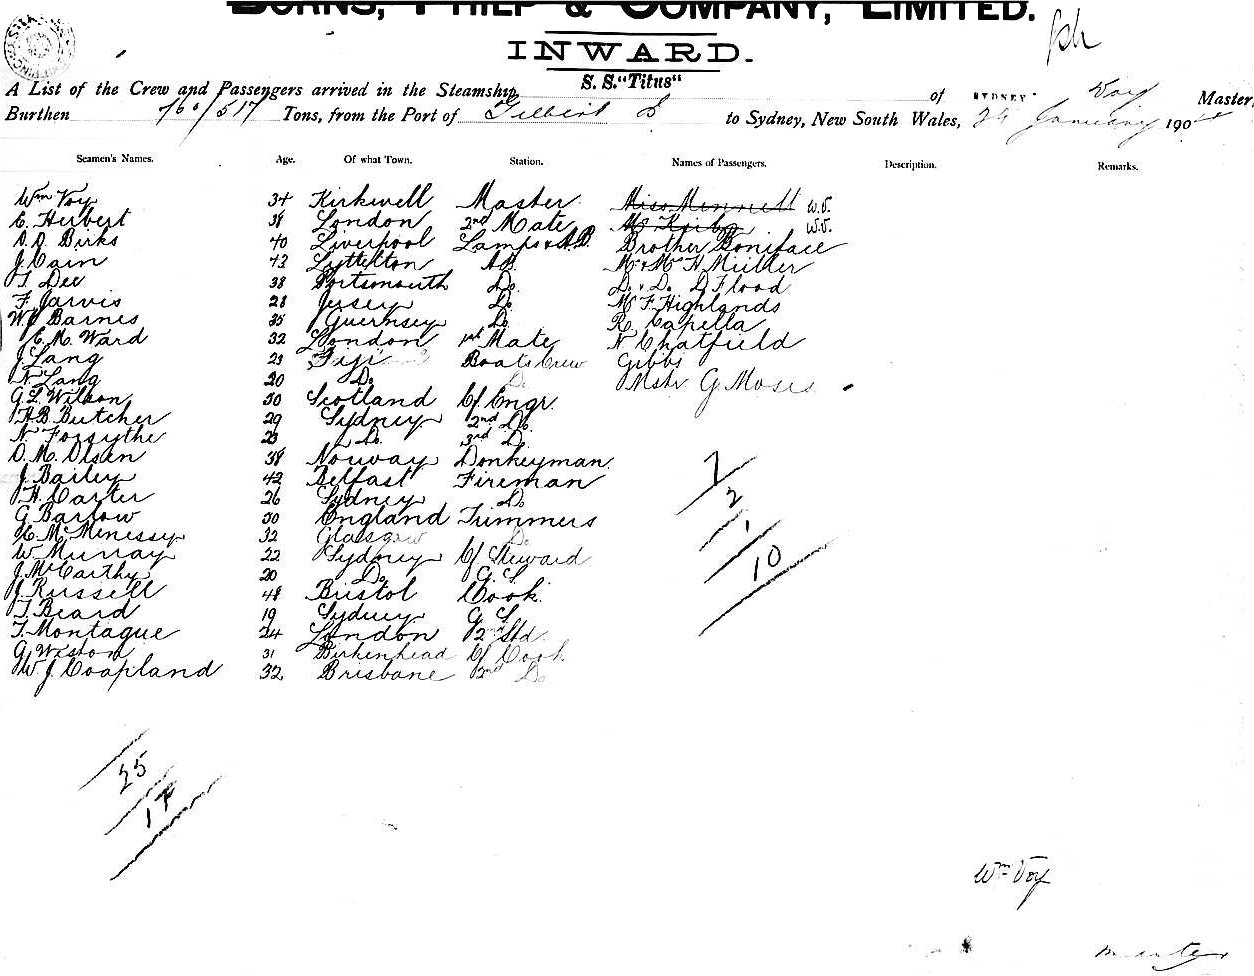 BURNS, PHILP & COMPANY, LIMITED.
INWARD.
S. S. "Titus"
A List of the Crew and Passengers arrived in the Steamship of SYDNEY Voy Master,
Burthen 760/517 Tons, from the Port of Gilbert Is to Sydney, New South Wales, 24 January 190
Seamen's Names. Age. Of what Town. Station. Names of Passengers. Description. Remarks.
Wm Voy 34 Kirkwell Master Miss Mennett W.V.
E. Herbert 38 London 2nd Mate W.V.
D. D. Birks 40 Liverpool Lamps & A.B. Brother Boniface
J. Cain 43 Lyttelton A.B. Mr & Mrs H Müller
T. Dee 38 Portsmouth Do. Do. & Do. D Flood
F. Jarvis 28 Jersey Do. Mr F. Highlands
W. J. Barnes 35 Guernsey Do R. Capella
E. M. Ward 32 London 1st Mate N Chatfield
J. Lang 23 Fiji Boats Crew Gibbs
N. Lang 20 Do. Do. Mstr G. Moses
G. L. Wilson 30 Scotland Cf. Engr.
H. B. Butcher 29 Sydney 2nd Do.
N. Forsythe 23 Do. 3rd Do.
O. M. Olsen 38 Norway Donkeyman
J. Bailey 42 Belfast Fireman
H. Carter 26 Sydney Do
G Barlow 30 England Trimmers
McMenessy 32 Glasgow Do.
W Murray 22 Sydney Cf Steward
J. McCarthy 20 Do. G. S.
J. Russell 48 Bristol Cook.
T. Beard 19 Sydney G S
T. Montague 24 London 2nd Std.
G. Weston 31 Birkenhead Cf Cook
W. J. Coapland 32 Brisbane 2nd Do
7
2
1
10
25
17
Wm Voy